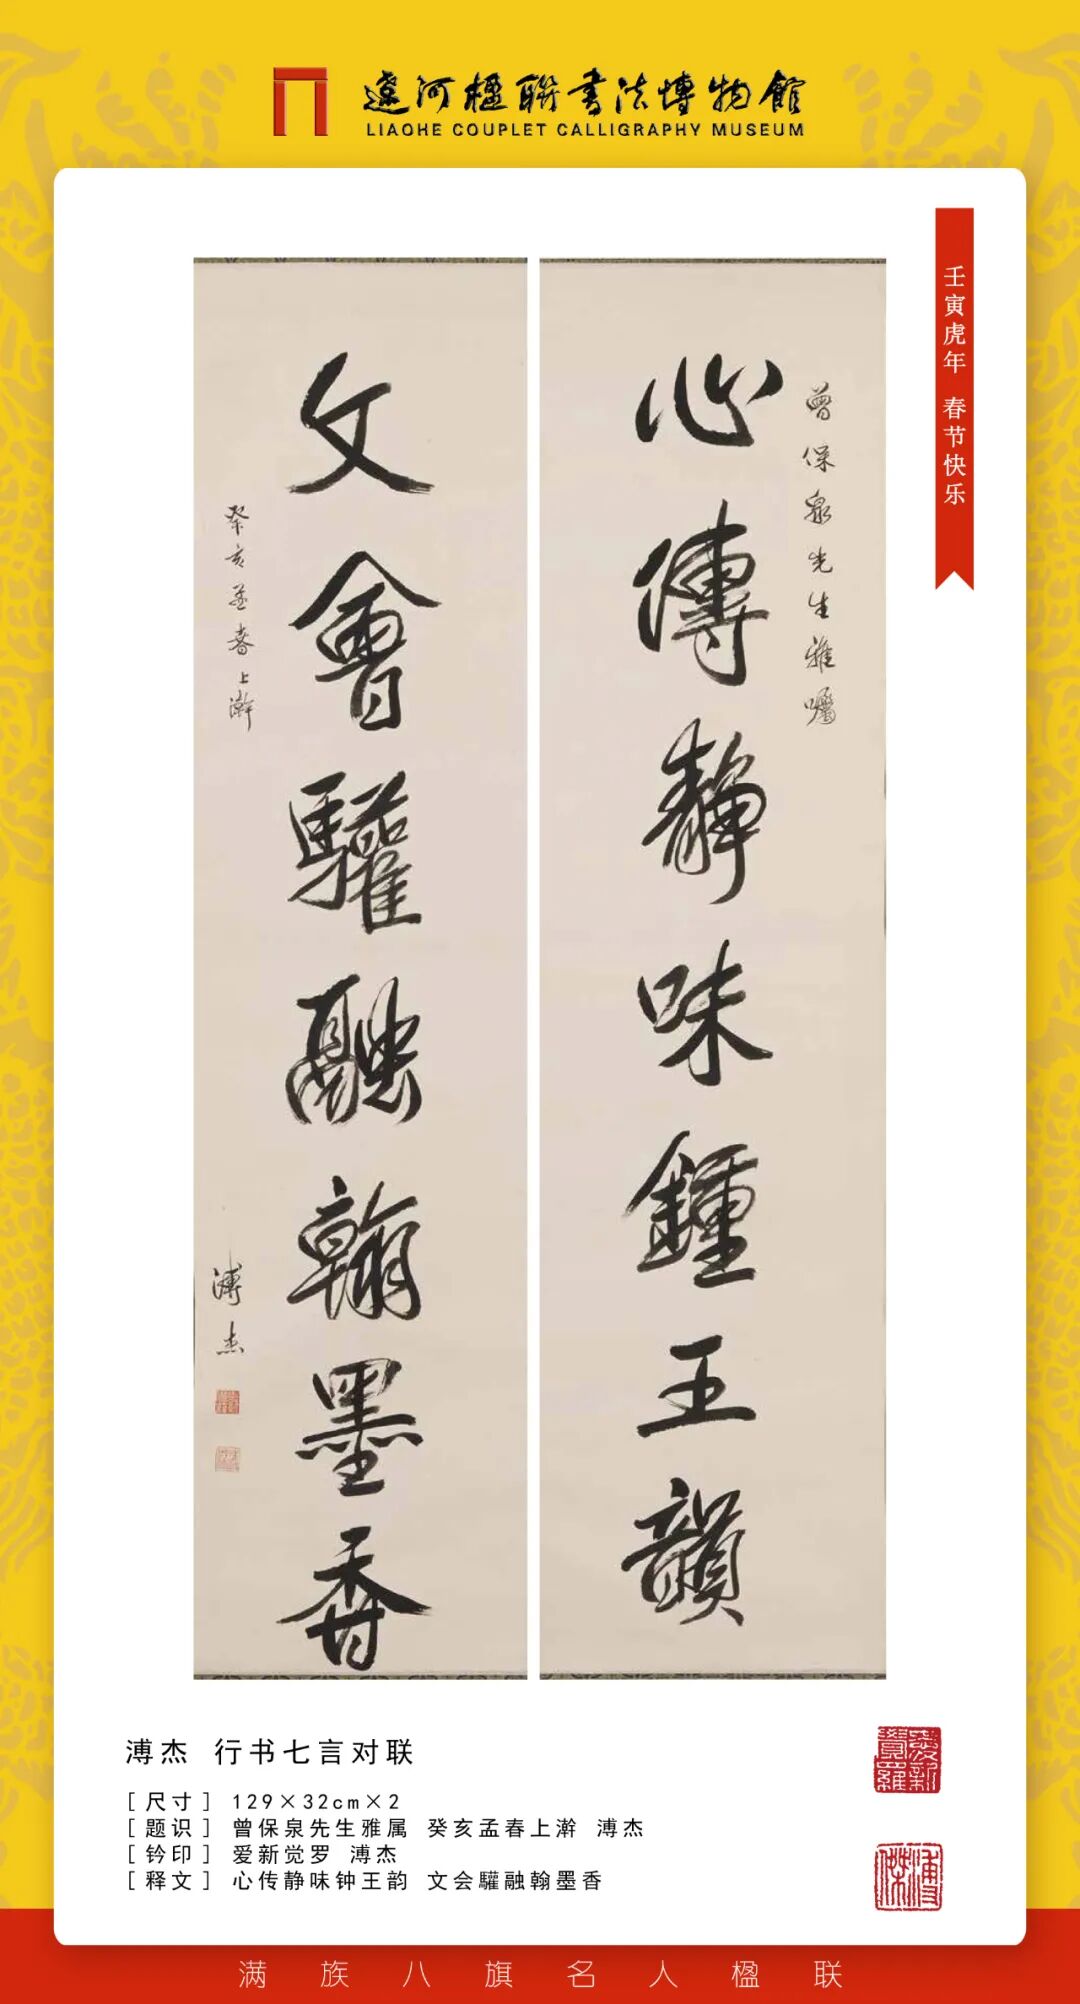 遼河楹聯書法博物館
LIAOHE COUPLET CALLIGRAPHY MUSEUM
壬寅虎年 春节快乐
曾保泉先生雅嘱
心傳靜味鍾王韻
文會驩融翰墨香
癸亥孟春上澣
溥杰
溥杰 行书七言对联
[尺寸] 129×32cm×2
[题识] 曾保泉先生雅属 癸亥孟春上澣 溥杰
[钤印] 爱新觉罗 溥杰
[释文] 心传静味钟王韵 文会驩融翰墨香
愛新覺羅
溥傑
满族八旗名人楹联